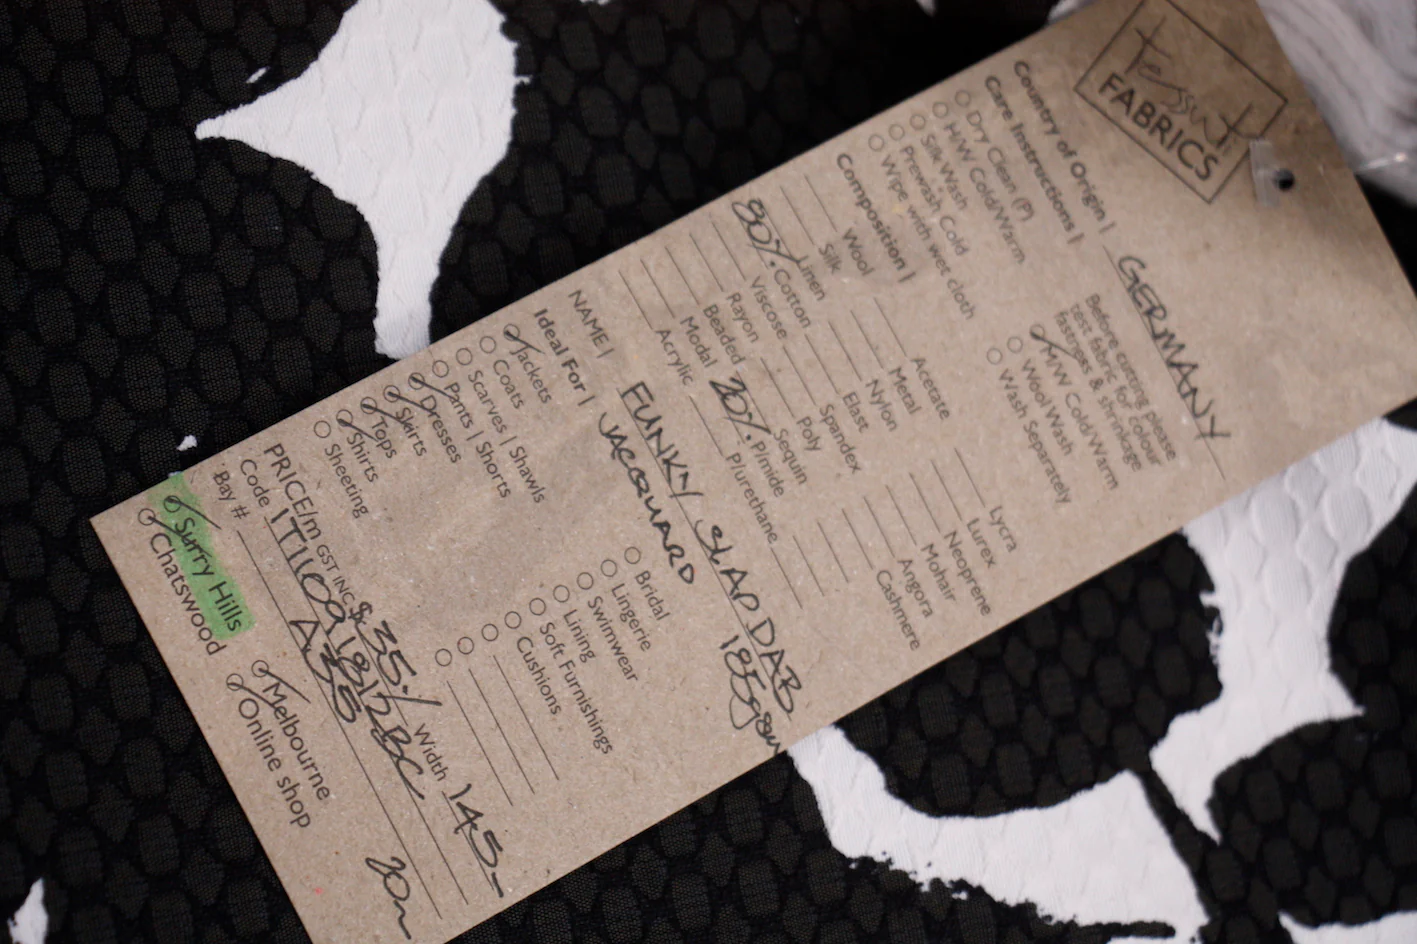 tessuti
FABRICS
Country of Origin | GERMANY
Care Instructions |
Before cutting please
test fabric for colour
fastness & shrinkage
Dry Clean (P)
H/W Cold/Warm
Silk Wash
Prewash Cold
Wipe with wet cloth
M/W Cold/Warm
Wool Wash
Wash Separately
Composition |
Wool
Silk
Linen
80% Cotton
Viscose
Rayon
Beaded
Modal
Acrylic
Acetate
Metal
Nylon
Elast
Spandex
Poly
Sequin
20% P/mide
Plurethane
Lycra
Lurex
Neoprene
Mohair
Angora
Cashmere
NAME | FUNKY SLAP DAB
JACQUARD 185gsm
Ideal For |
Jackets
Coats
Scarves | Shawls
Pants | Shorts
Dresses
Skirts
Tops
Shirts
Sheeting
Bridal
Lingerie
Swimwear
Lining
Soft Furnishings
Cushions
PRICE/m GST INC $35./ Width 145-
Code
Bay # A35 20m
Surry Hills
Chatswood
Melbourne
Online shop